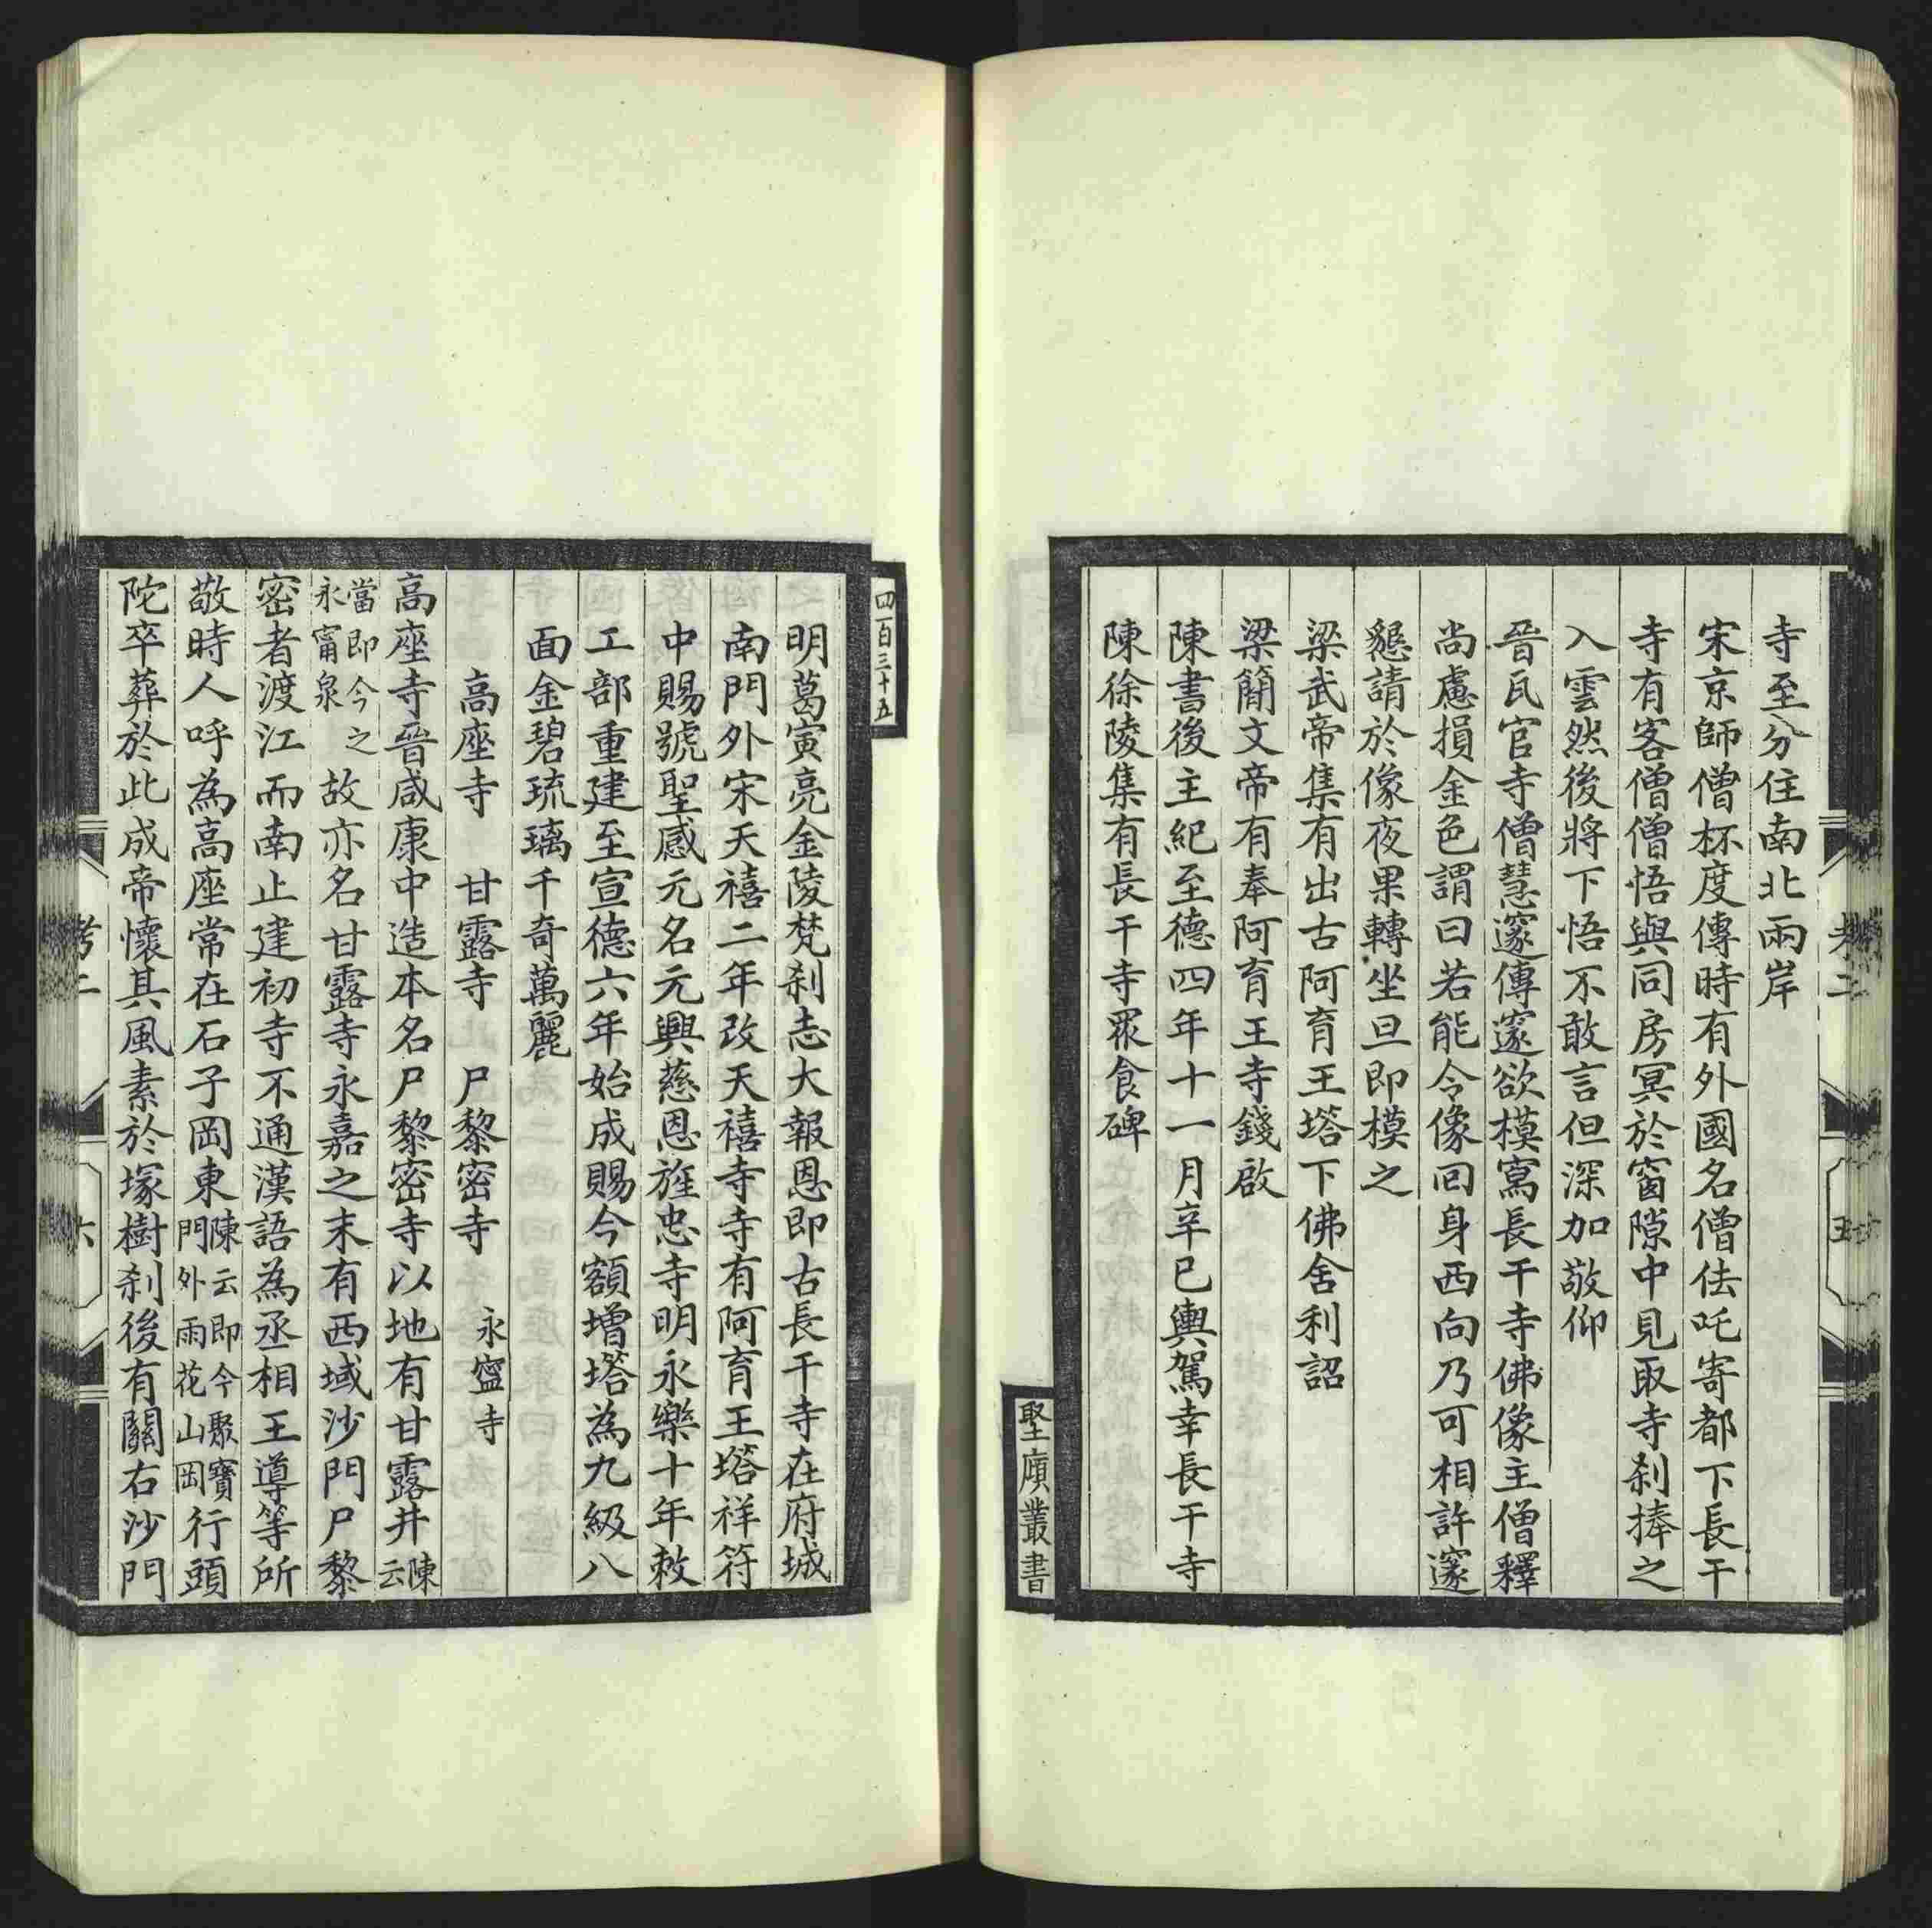 寺至分住南北兩岸
宋京師僧杯度傳時有外國名僧佉吒寄都下長干
寺有客僧僧悟與同房冥於窗隙中見取寺刹捧之
入雲然後將下悟不敢言但深加敬仰
晉瓦官寺僧慧邃傳邃欲模寫長干寺佛像主僧釋
尚慮損金色謂曰若能令像回身西向乃可相許邃
懇請於像夜果轉坐旦即模之
梁武帝集有出古阿育王塔下佛舍利詔
梁簡文帝有奉阿育王寺錢啟
陳書後主紀至德四年十一月辛巳輿駕幸長干寺
陳徐陵集有長干寺眾食碑
堅廎叢書
四百三十五
明葛寅亮金陵梵刹志大報恩即古長干寺在府城
南門外宋天禧二年改天禧寺寺有阿育王塔祥符
中賜號聖感元名元興慈恩旌忠寺明永樂十年敕
工部重建至宣德六年始成賜今額增塔為九級八
面金碧琉璃千奇萬麗
高座寺 甘露寺 尸黎密寺 永寧寺
高座寺晉咸康中造本名尸黎密寺以地有甘露井陳云
當即今之永甯泉故亦名甘露寺永嘉之末有西域沙門尸黎
密者渡江而南止建初寺不通漢語為丞相王導等所
敬時人呼為高座常在石子岡東陳云即今聚寶門外雨花山岡行頭
陀卒葬於此成帝懷其風素於塚樹刹後有關右沙門
考二
六